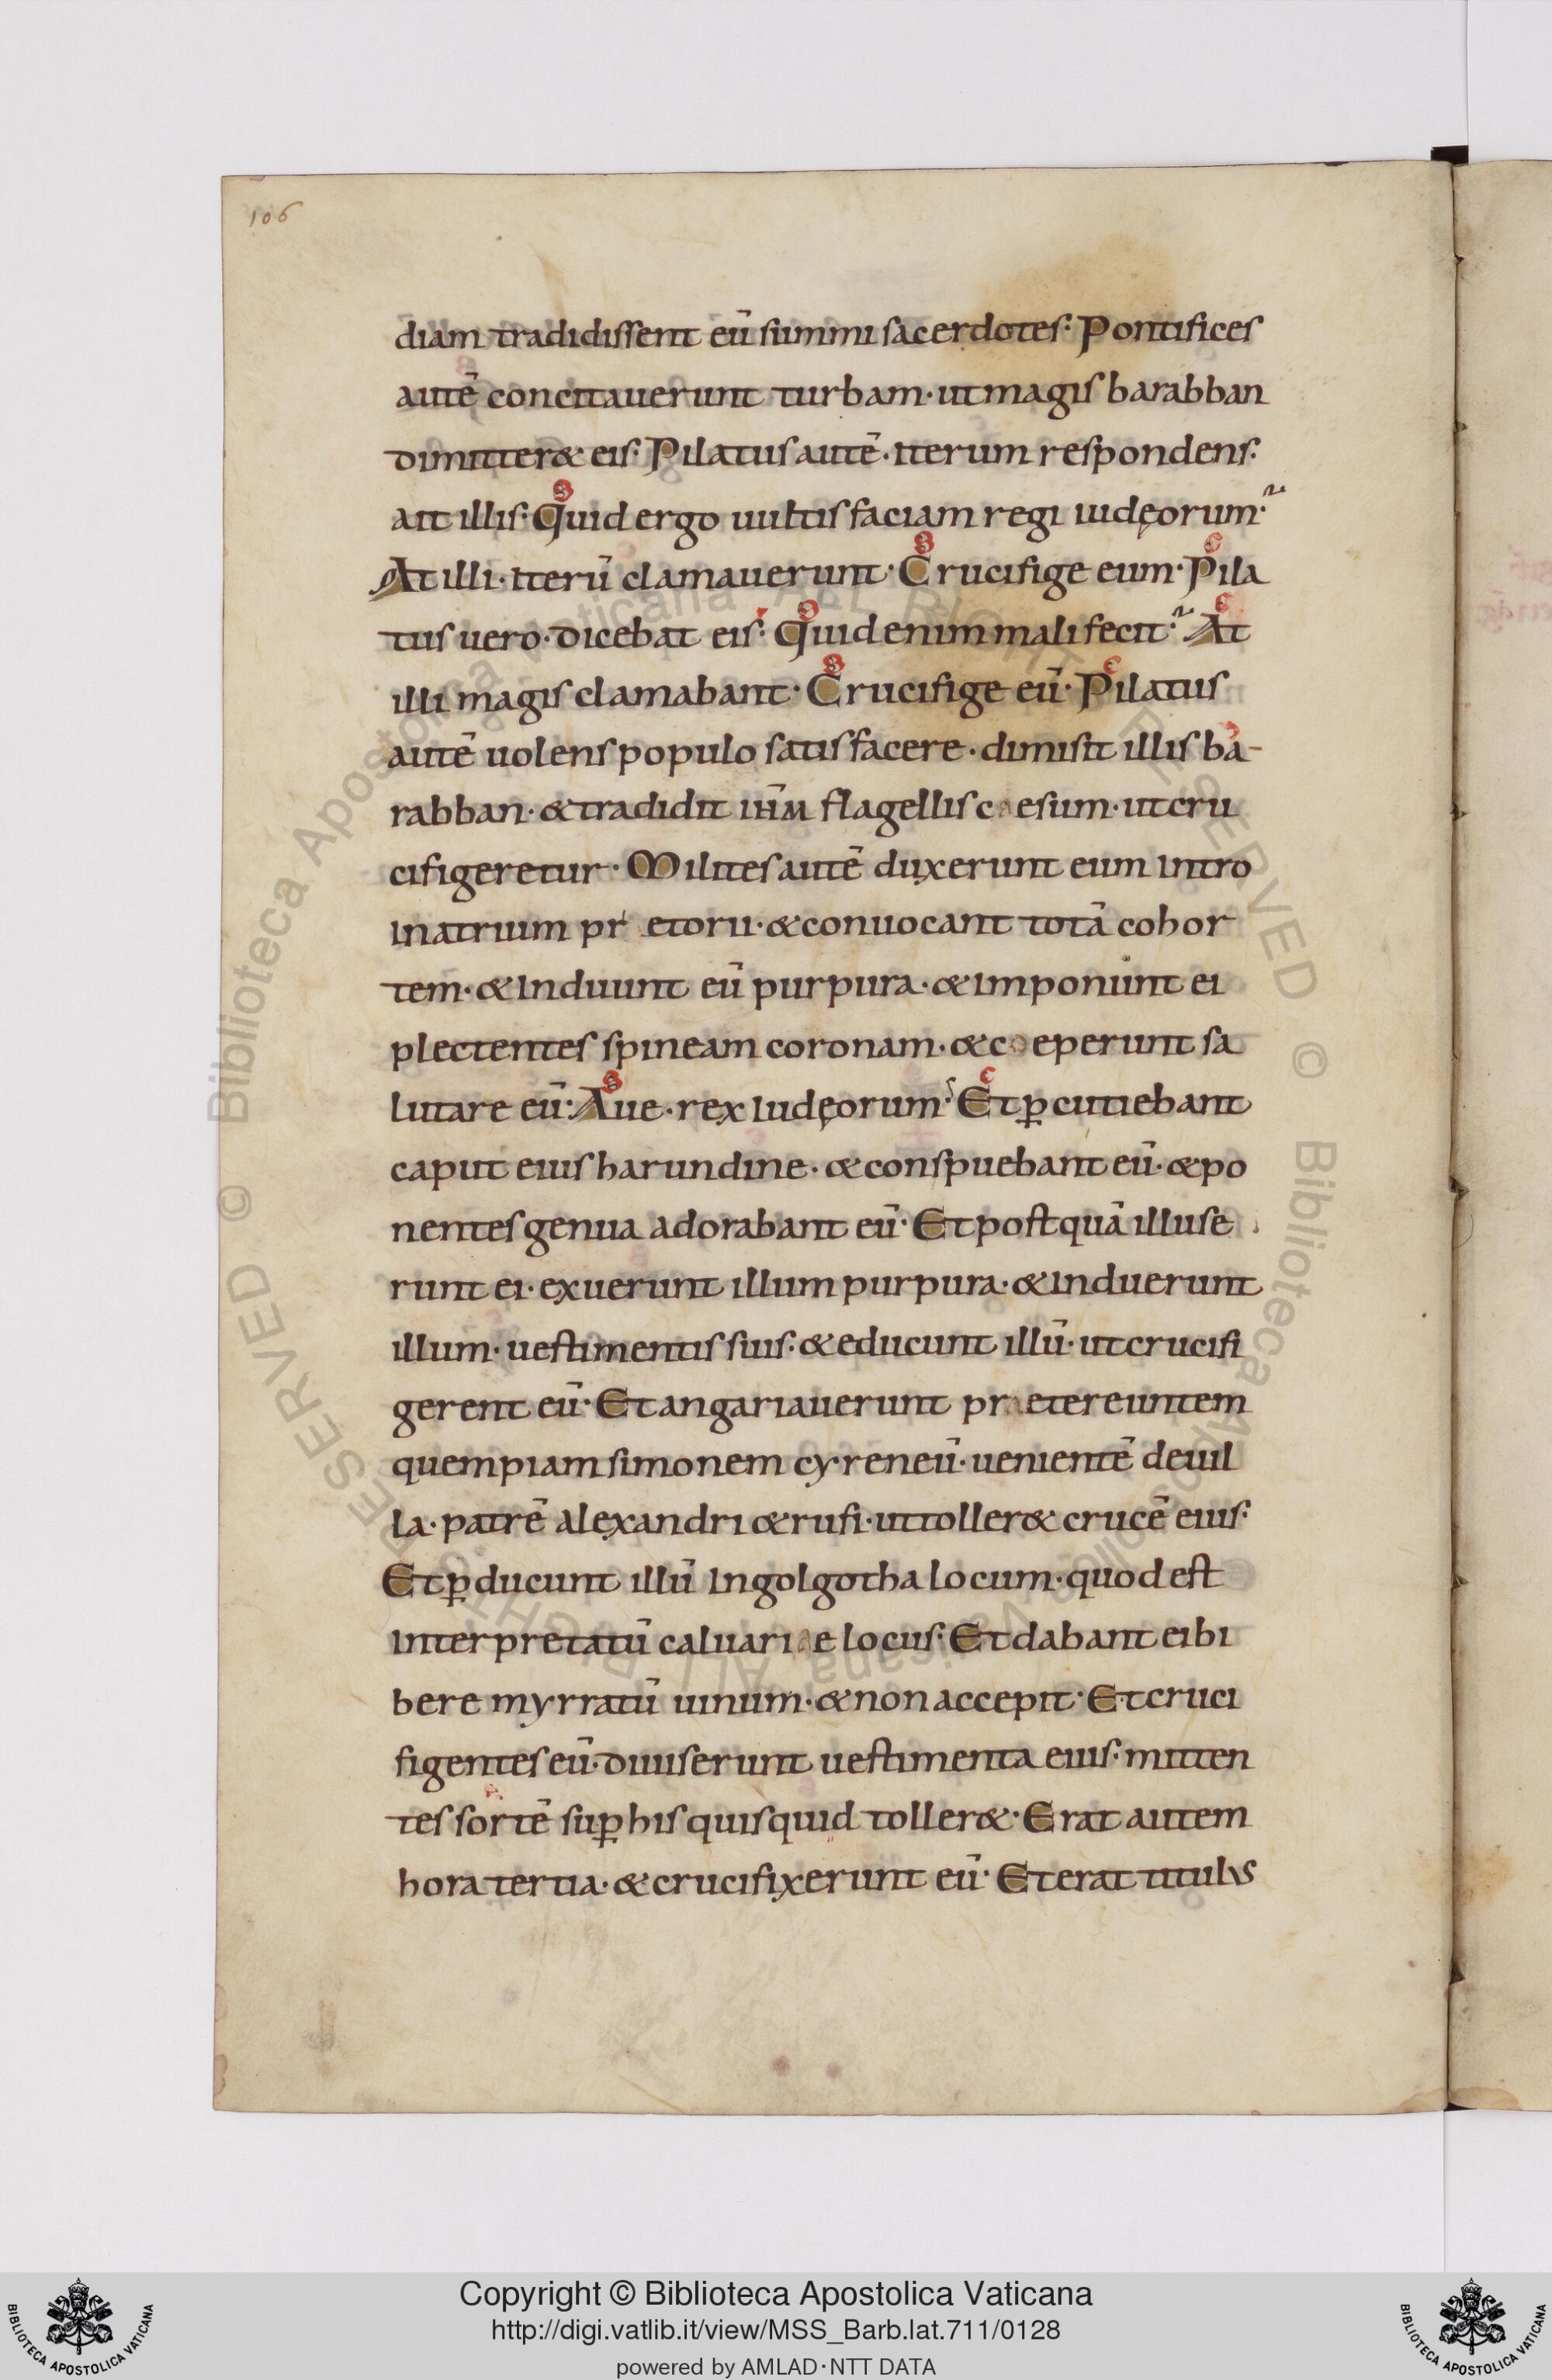 106
diam tradidissent eū summi sacerdotes· Pontifices
autē concitauerunt turbam· ut magis barabban
dimitter& eis· Pilatus autē· iterum respondens·
ait illis· Quid ergo uultis faciam regi iudęorum·
At illi· iterū clamauerunt· Crucifige eum· Pila
tus uero· dicebat eis· Quid enim mali fecit· At
illi magis clamabant· Crucifige eū· Pilatus
autē uolens populo satisfacere· dimisit illis ba-
rabban· & tradidit ihm̄ flagellis caesum· ut cru
cifigeretur· Milites autē duxerunt eum intro
in atrium pr etorii· & conuocant totā cohor
tem· & induunt eū purpura· & imponunt ei
plectentes spineam coronam· & coeperunt sa
lutare eū· Aue· rex iudęorum· Et ꝑcutiebant
caput eius harundine· & conspuebant eū· & po
nentes genua adorabant eū· Et postquā illuse
runt ei· exuerunt illum purpura· & induerunt
illum· uestimentis suis· & educunt illū· ut crucifi
gerent eū· Et angariauerunt praetereuntem
quempiam simonem cyreneū· uenientē de uil
la· patrē alexandri & rufi· ut toller& crucē eius·
Et ꝑducunt illū in golgotha locum· quod est
interpretatū caluariae locus· Et dabant ei bi
bere myrratū uinum· & non accepit· Et cruci
figentes eū· diuiserunt uestimenta eius· mitten
tes sortē suꝑ his quis quid toller&· Erat autem
hora tertia· & crucifixerunt eū· Et erat titulus
Copyright © Biblioteca Apostolica Vaticana
http://digi.vatlib.it/view/MSS_Barb.lat.711/0128
powered by AMLAD·NTT DATA